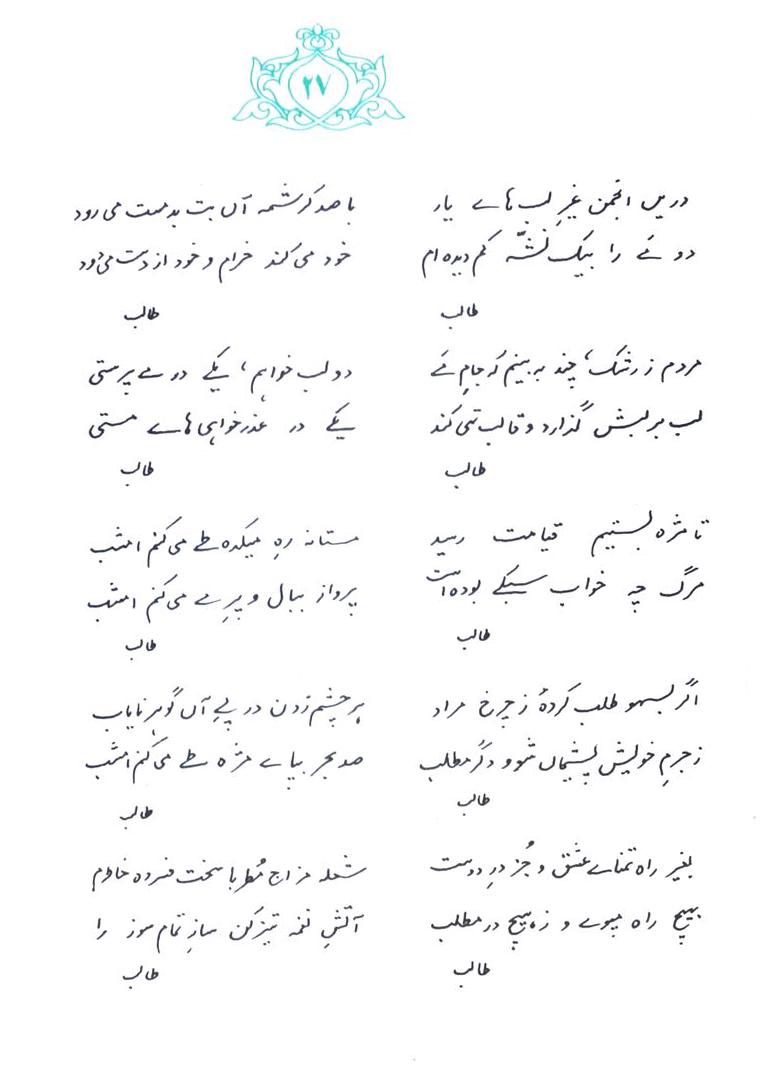 ۲۷
دریں انجمن غیرِ لب ہائے یار
دو مَے را بیک نشّہ کم دیدہ ام
طالب
با صد کرشمہ آں بت بدمست می رود
خود می کند خرام و خود از دست می رود
طالب
مردم ز رشک، چند بہ بینم کہ جامِ مَے
لب بر لبش گذارد و قالب تہی کند
طالب
دو لب خواہم، یکے در مے پرستی
یکے در عذر خواہی ہائے مستی
طالب
تا مژہ بستیم قیامت رسید
مرگ چہ خواب سبکے بودہ است
طالب
مستانہ رہِ میکدہ طے می کنم امشب
پرواز ببال و پرِ مے می کنم امشب
طالب
اگر بسہو طلب کردۂ ز چرخ مراد
ز جرمِ خویش پشیماں شو و دگر مطلب
طالب
ہر چشم زدن در پےِ آں گوہر نایاب
صد بحر بپائے مژہ طے می کنم امشب
طالب
بغیر راہ تمنائے عشق و جُز درِ دوست
بہیچ راہ مپوے و ز ہیچ در مطلب
طالب
شعلہ مزاج مُطربا سخت فسردہ خاطرم
آتشِ نغمہ تیز کن سازِ تمام سوز را
طالب